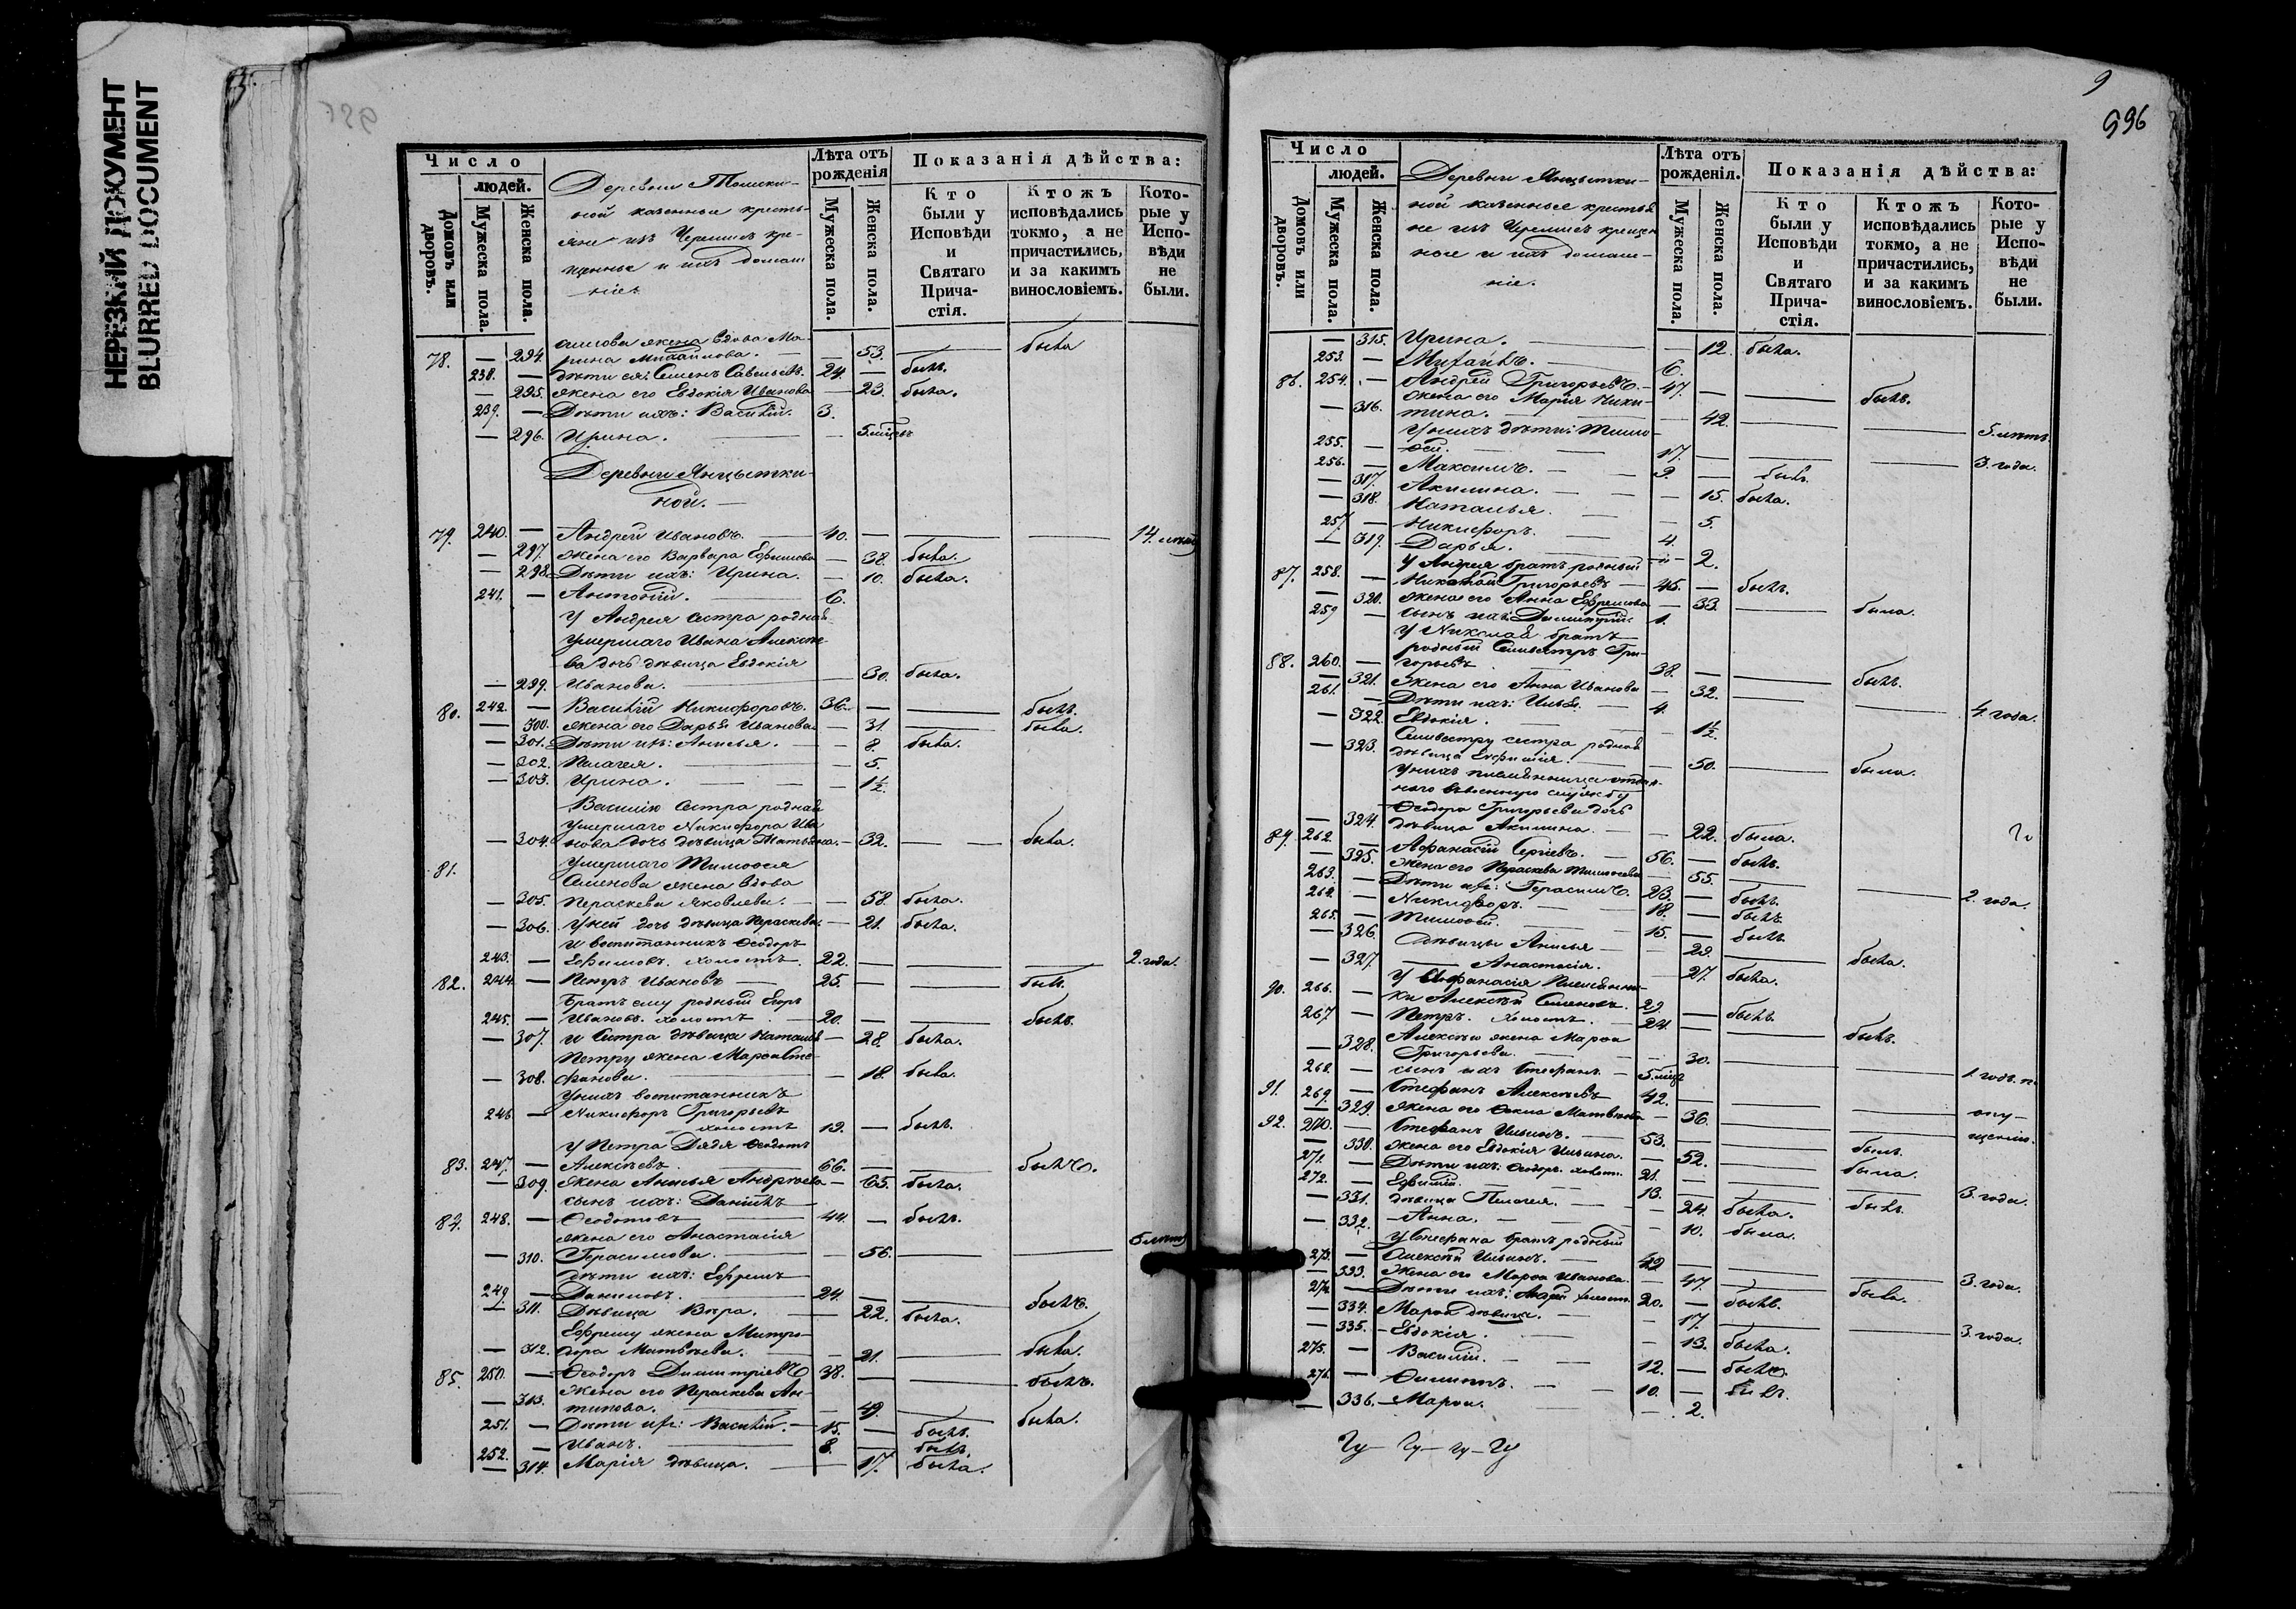 НЕРЕЗКИЙ ДОКУМЕНТ
BLURRED DOCUMENT
Число
людей.
Домовъ или дворовъ.
Мужеска пола.
Женска пола.
Деревни
ной казенные кресть-
яне изъ Черемисъ кре-
щенные и ихъ домаш
ніе.
Лѣта отъ рожденія
Мужеска пола.
Женска пола.
Показанія дѣйства:
Кто были у Исповѣди и Святаго Прича-стія.
Ктожъ исповѣдались токмо, а не причастились, и за какимъ винословіемъ.
Кото-рые у Испо-вѣди не были.
жена вдова Ма-
78. — 294. рина Михайлова. — 53. — была
238. — дѣти ея: Семенъ Савельевъ. 24. — былъ.
— 295. жена его Евдокія Иванова — 23. была.
239. — Дѣти ихъ: Василій. 3.
— 296. Ирина. — 5. мѣцъ
Деревни Янцытки-
ной.
79. 240. — Андрей Ивановъ. 40. — — — 14 лѣтъ
— 297. жена его Варвара Ефимова — 38. была.
— 298. Дѣти ихъ: Ирина. — 10. была.
241. — Антоній. 6.
У Андрея сестра родная
умершаго Ивана Алексѣе
ва дочь дѣвица Евдокія
— 299. Иванова. — 30. была.
80. 242. — Василій Никифоровъ. 36. — — былъ.
— 300. жена его Дарья Иванова — 31. — была.
— 301. Дѣти ихъ: Анисья. — 8. была.
— 302. Пелагея. — 5.
— 303. Ирина. — 1½.
Василію сестра родная
умершаго Никифора Ива
— 304. нова дочь дѣвица Татьяна. — 32. — — была.
81. умершаго Тимофея
Семенова жена вдова
— 305. Параскева Яковлева. — 58. была.
— 306. У ней дочь дѣвица Параскева. — 21. была.
и воспитанникъ Ѳеодоръ
243. — Ефимовъ. холостъ. 22. — — — 2. года.
82. 244. — Петръ Ивановъ — 25. — — былъ.
Братъ ему родный Егоръ
245. — Ивановъ. холостъ. 20. — — былъ.
— 307. и сестра дѣвица Наталья — 28. была.
Петру жена Марѳа Сте-
— 308. фанова. — 18. была.
У нихъ воспитанникъ
246 — Никифоръ Григорьевъ
холостъ 19. — былъ.
У Петра Дядя Ѳеодотъ
83. 247. — Алексѣевъ. 66. — — былъ.
— 309. жена Анисья Андреева — 65. была.
сынъ ихъ: Даніилъ
84. 248. — Ѳеодотовъ 44. — былъ.
жена его Анастасія
— 310. Герасимова. — 56. — — 6 лѣтъ
дѣти ихъ: Ефремъ
249. — Даниловъ. 24. — — былъ.
— 311. Дѣвица Вѣра. — 22. была.
Ефрему жена Митро-
— 312. дора Матвѣева. — 21. — была.
85. 250. — Ѳеодоръ Димитріевъ 38. — — былъ.
жена его Параскева Ан-
— 313. типова. — 49. — была.
251. — Дѣти ихъ: Василій. 15. — былъ.
252. — Иванъ. 8. — былъ.
— 314. Марія дѣвица. — 17. была.
9
996
Число
людей.
Домовъ или дворовъ.
Мужеска пола.
Женска пола.
Деревни Янцытки-
ной казенные крестья
не изъ Черемисъ крещен
ные и ихъ домаш-
ніе.
Лѣта отъ рожденія.
Мужеска пола.
Женска пола.
Показанія дѣйства:
Кто были у Исповѣди и Святаго Прича-стія.
Ктожъ исповѣдались токмо, а не причастились, и за какимъ винословіемъ.
Кото-рые у Испо-вѣди не были.
— 315. Ирина. — 12. была.
253. — Михаилъ. 6.
86. 254. — Андрей Григорьевъ. 47. — — былъ.
жена его Марія Ники-
— 316. тина. — 42. — — 5. лѣтъ.
У нихъ дѣти: Тимо-
255. — ѳей. 17. — — — 3. года.
256. — Максимъ. 9. — былъ.
— 317. Акилина. — 15. была.
— 318. Наталья. — 5.
257. — Никифоръ. 4.
— 319. Дарья. — 2.
У Андрея братъ родный
87. 258. — Николай Григорьевъ — 45. — былъ.
— 320. жена его Анна Ефремова — 33. — была.
259 — сынъ ихъ: Димитрій. 1.
У Николая братъ
родный Сильвестръ Гри-
88. 260. — горьевъ 38. — — былъ.
— 321. жена его Анна Иванова — 32. — — 4. года.
261. — Дѣти ихъ: Илья. 4.
— 322. Евдокія. — 1½.
Сильвестру сестра родная
— 323. дѣвица Евфимія. — 50. — была.
У нихъ племянница отдан-
наго въ военную службу
Ѳеодора Григорьева дочь
— 324. дѣвица Акилина. — 22. была.
89. 262. — Афанасій Сергѣевъ. 56. — былъ.
— 325. жена его Параскева Тимофеева — 55. — — 2. года.
263. — Дѣти ихъ: Герасимъ. 23. — былъ.
264. — Никифоръ. 18. — былъ.
265. — Тимоѳей. 15. — былъ.
— 326. Дѣвицы Анисья — 29. — была.
— 327. Анастасія. — 27. была.
У Афанасія племянни-
90. 266. — ки Алексѣй Семеновъ. 29. — былъ.
267 — Петръ. холостъ. 24. — — былъ.
Алексѣю жена Марѳа
— 328. Григорьева. — 30. — — 1. годъ. п.
268. — сынъ ихъ Стефанъ. 5. мѣц
91. 269. — Стефанъ Алексѣевъ 42. — — — опу-
— 329. жена его Ѳекла Матвѣева — 36. — — щенію.
92. 270. — Стефанъ Ильинъ. 53. — — былъ.
— 330. жена его Евдокія Ильина. — 52. — была.
271. — Дѣти ихъ: Ѳеодоръ. холост. 21. — — — 3. года.
272. — Ефимій. 13. — — былъ.
— 331. дѣвица Пелагея. — 24. была.
— 332. Анна. — 10. была.
У Стефана братъ родный
273. — Алексѣй Ильинъ. 49 — — — 3. года.
— 333. Жена его Марѳа Иванова. — 47. — была.
274. — Дѣти ихъ: холост. 20. — былъ.
— 334. Марѳа дѣвица. — 17. — — 3. года.
— 335. Евдокія. — 13. была.
275. — Василій. 12. — былъ.
276. — Филиппъ. 10. — былъ.
— 336. Марѳа. — 2.